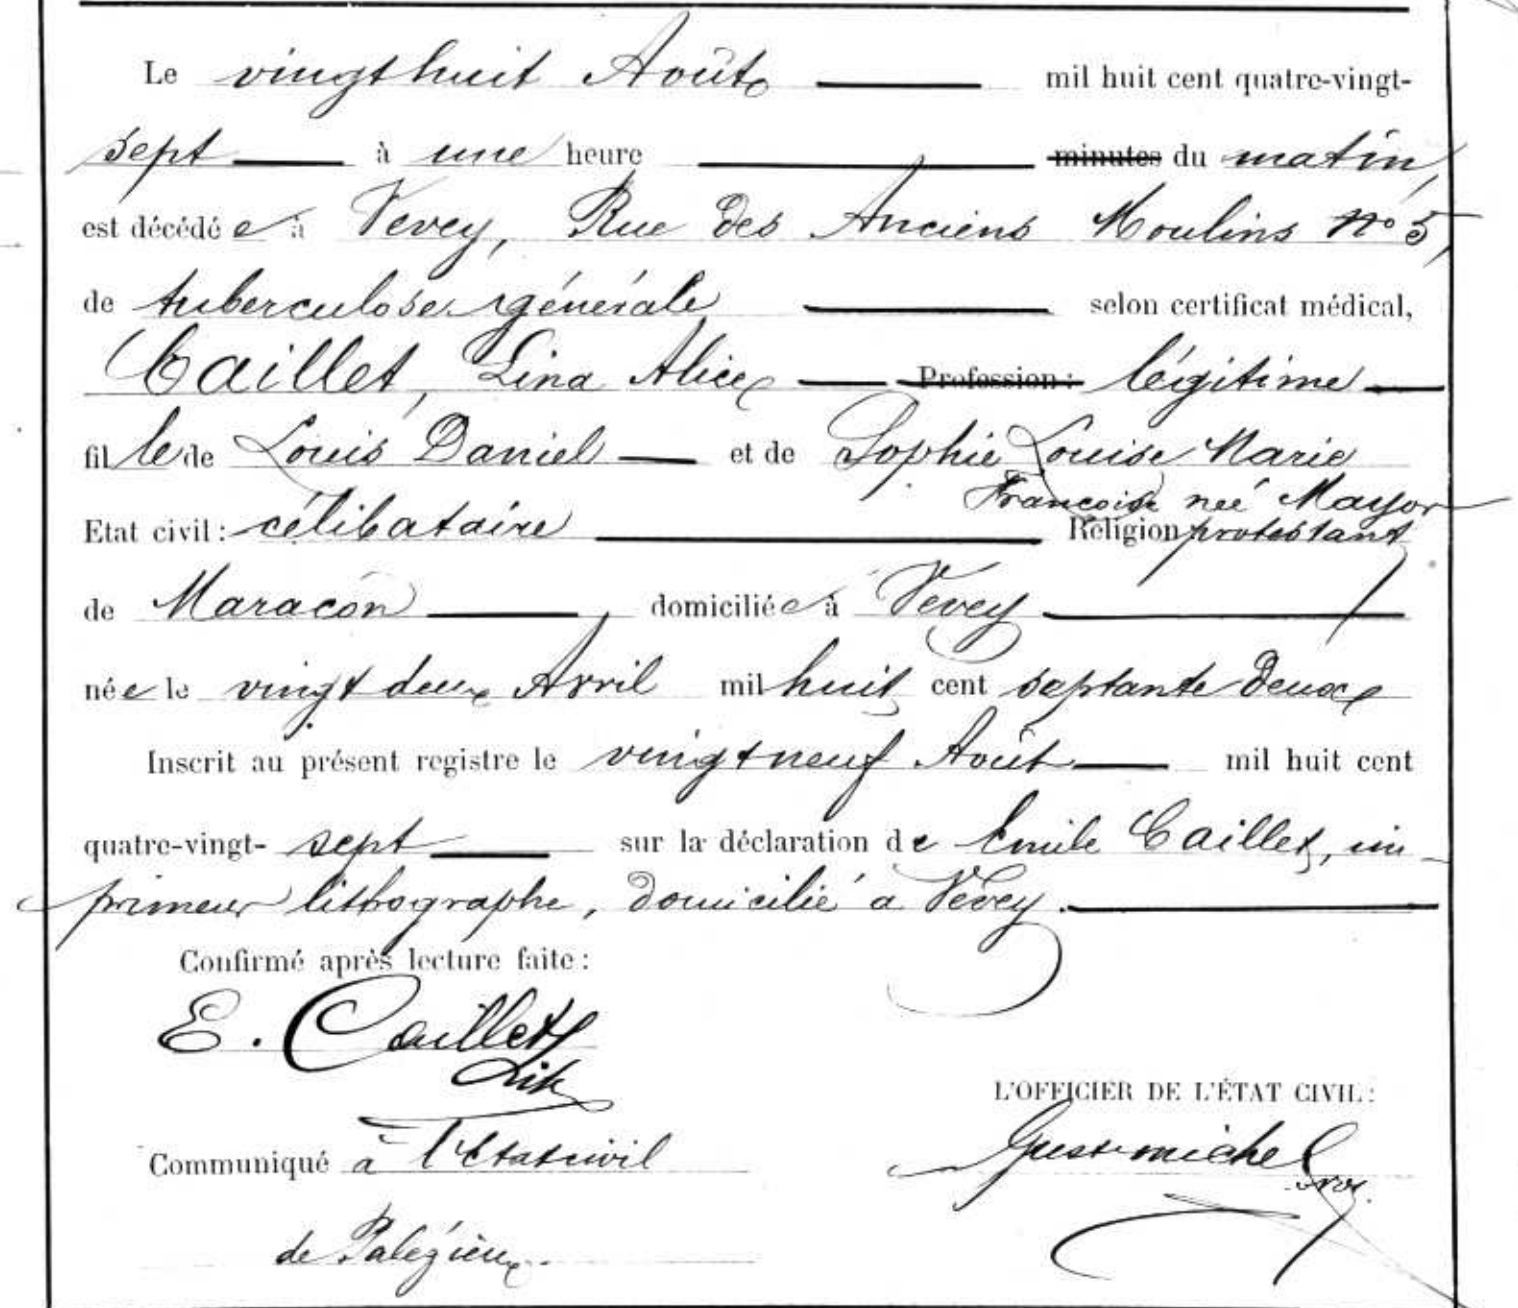 Le vingt huit Août mil huit cent quatre-vingt-
sept à une heure minutes du matin,
est décédée à Vevey, Rue des Anciens Moulins No 5,
de tuberculose générale selon certificat médical,
Caillet, Lina Alice Profession : légitime
fille de Louis Daniel et de Sophie Louise Marie
Françoise neé Mayor
Etat civil : célibataire Religion protestant
de Maracon, domiciliée à Vevey
née le vingt deux Avril mil huit cent septante deux
Inscrit au présent registre le vingt neuf Août mil huit cent
quatre-vingt- sept sur la déclaration de Emile Caillet, im-
primeur lithographe, domicilié à Vevey.
Confirmé après lecture faite :
E. Caillet
Lith
L'OFFICIER DE L'ÉTAT CIVIL :
Communiqué à l'Etat civil
Gust. Michel
de Palézieux.